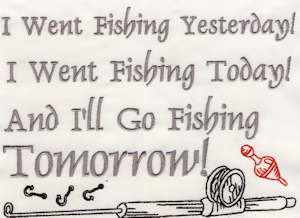 I Went Fishing Yesterday!
I Went Fishing Today!
And I'll Go Fishing
Tomorrow!